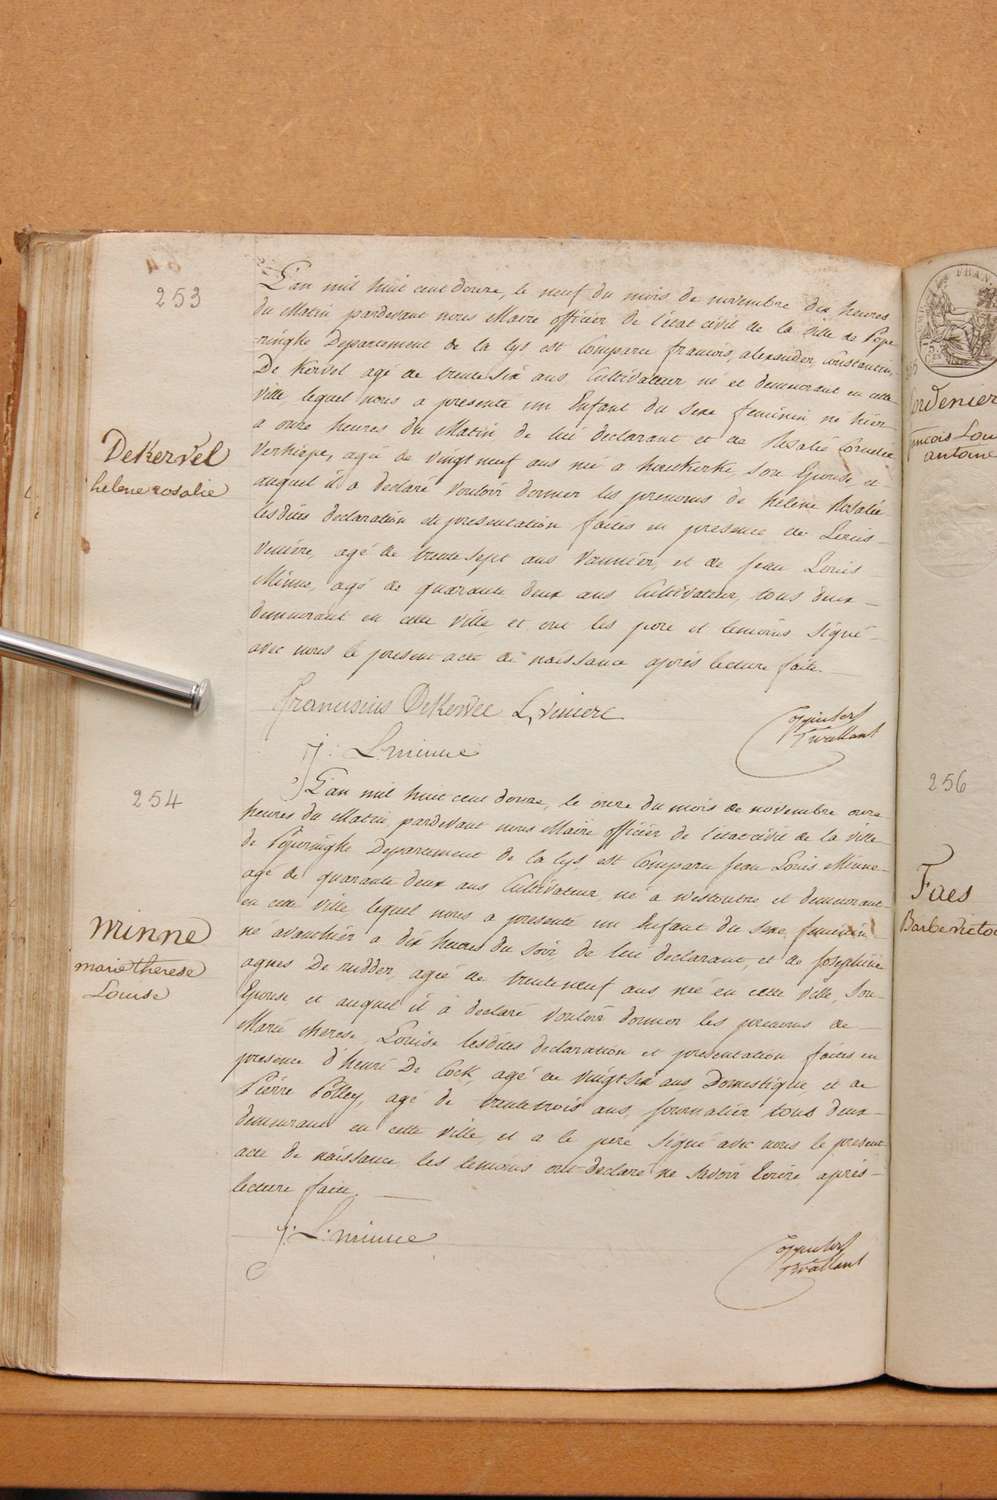 253
DeKervel
helene rosalie
L'an mil huit cent douze, le neuf du mois de novembre dix heures
du Matin pardevant nous Maire officier de l'état civil de la ville de Pope
ringhe Departement de la Lys est Comparu francois, alexander, Constantin,
De Kervel agé de trente six ans, Cultivateur né et demeurant en cette
ville lequel nous a presenté un Enfant du sexe feminin né hier
a onze heures du Matin de lui declarant et de Rosalie Cornelie
Verhiepe, agé de vingt neuf ans née a houtkerke, son Epouse et
auquel il a declaré vouloir donner les prenoms de hélène Rosalie
lesdites declaration et presentation faites en presence de Louis
Venière, agé de trente sept ans Vannier, et de Jean Louis
Minne, agé de quarante deux ans Cultivateur, tous deux
demeurant en cette ville et ont les pere et temoins signé
avec nous le present acte de naissance après lecture faite.
Franciscus DeKervel L, Veniere
j: L: minne
254
minne
marie therese
Louise
L'an mil huit cent douze, le onze du mois de novembre onze
heures du Matin pardevant nous Maire officier de l'état civil de la ville
de Poperinghe Departement de la Lys, est Comparu Jean Louis Minne
agé de quarante deux ans Cultivateur, né a westoutre et demeurant
en cette ville, lequel nous a presenté un Enfant du sexe feminin
né avanthier a dix heures du soir de lui declarant, et de Josephine
agnes De rudder, agée de trente neuf ans née en cette ville, son
Epouse et auquel il à declaré vouloir donner les prenoms de
Marie therese, Louise lesdites declaration et presentation faites en
presence d'henri De Cock, agé de vingt six ans Domestique, et de
Pierre Polley, agé de trente trois ans, journalier, tous deux
demeurant en cette ville, et a le pere signé avec nous le present
acte de naissance les temoins ont declaré ne savoir Ecrire après
lecture faite.
j: L: minne
FRAN
Cordenier
francois Lou
antoine
256
Faes
Barbe victo